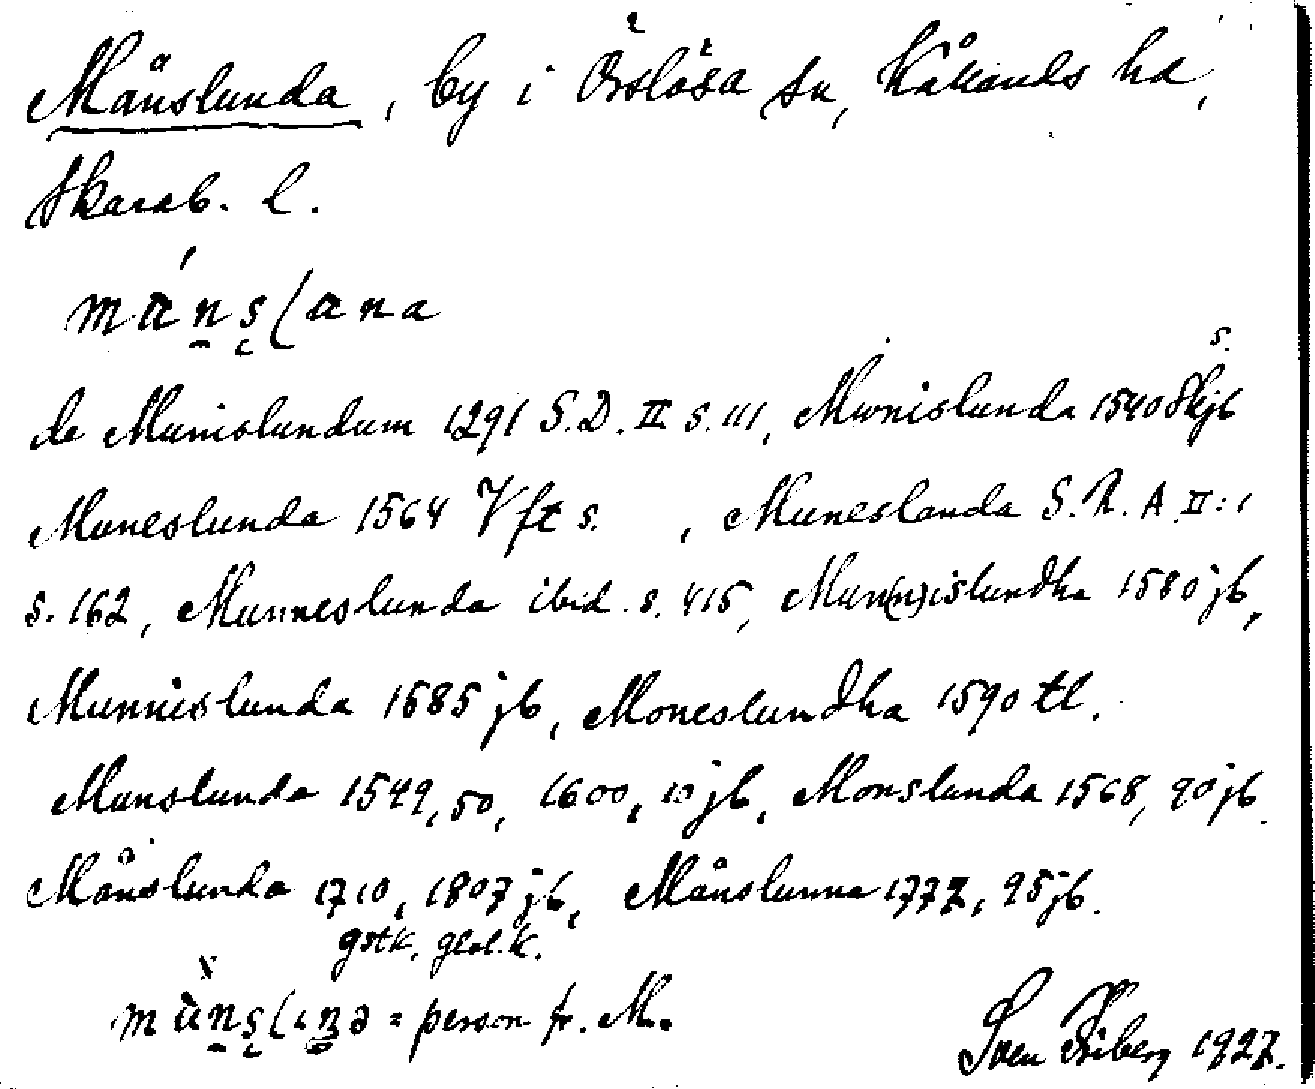 Månslunda, by i Örslösa sn, Kållands hd,
Skarab. l.
de Munislundum 1291 S.D. II s. 111, Munislunda 1540 Skjb s.
Muneslunda 1564 Vft s. , Muneslanda S.R.A. II:1
s. 162, Munneslunda ibid. s. 415, Mun(n)islundha 1580 jb,
Munnislunda 1585 jb, Moneslundha 1590 tl.
Manslunda 1549, 50, 1600, 10 jb, Monslunda 1568, 90 jb.
Månslunda 1710, 1807 jb, Månslunna 1772, 95 jb.
gstk. geol. k.
= person fr. M.
Sven Friberg 1927.